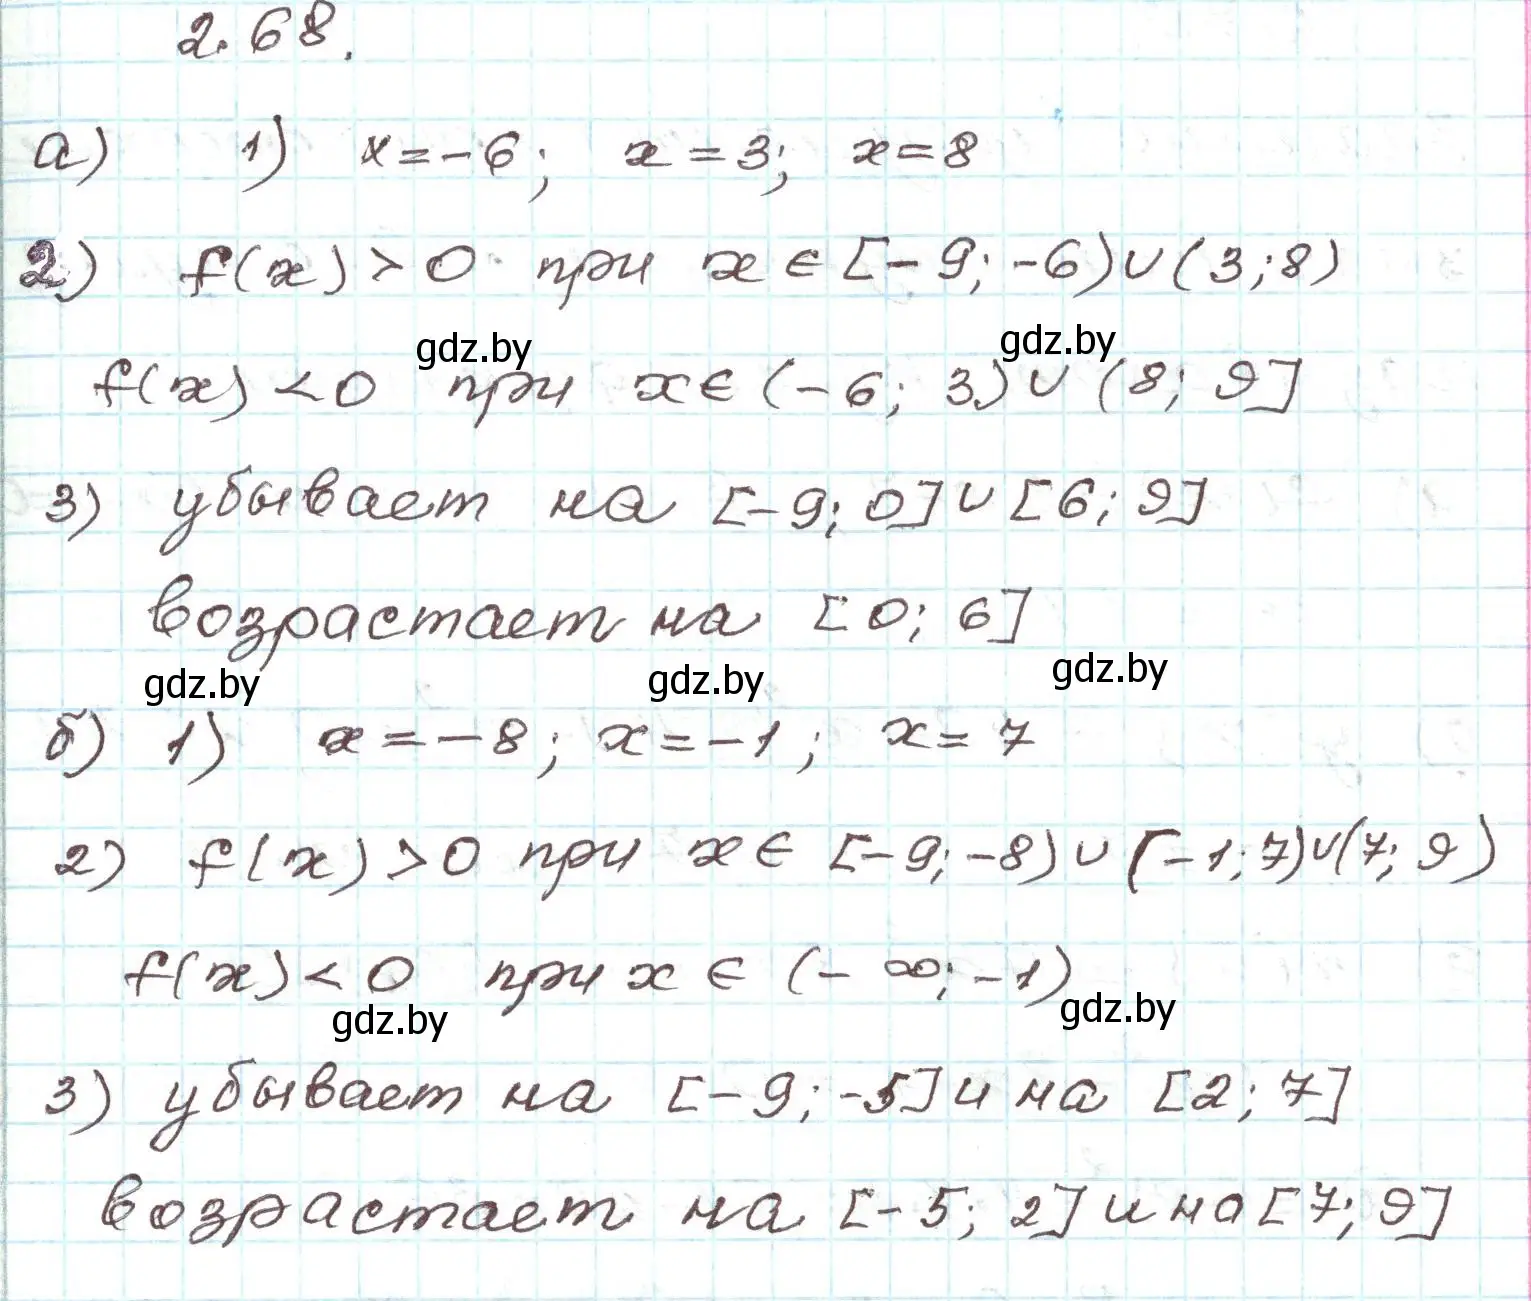 2.68.
а) 1) x=-6; x=3; x=8
2) f(x)>0 при x∈[-9;-6)∪(3;8)
gdz.by gdz.by
f(x)<0 при x∈(-6; 3)∪(8; 9]
3) убывает на [-9; 0]∪[6; 9]
возрастает на [0; 6]
gdz.by gdz.by gdz.by
б) 1) x=-8; x=-1; x=7
2) f(x)>0 при x∈[-9;-8)∪(-1;7)∪(7; 9)
f(x)<0 при x∈(-∞;-1)
gdz.by gdz.by
3) убывает на [-9; -5] и на [2; 7]
возрастает на [-5; 2] и на [7; 9]